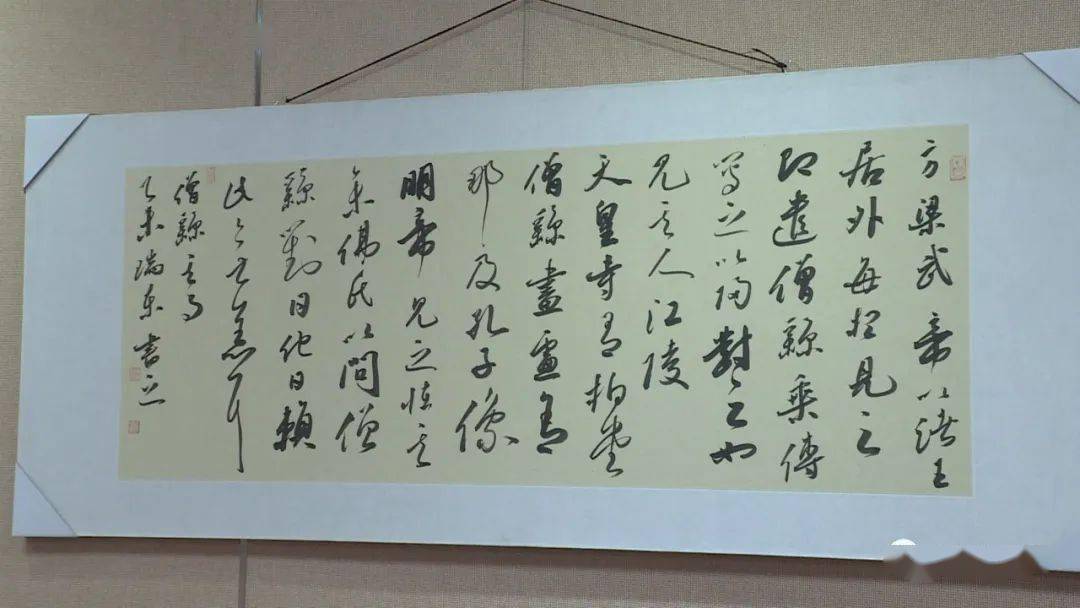 方梁武帝以諸王
居外每想見之
即遣僧繇乘傳
寫之以歸對之如
見其人江陵
天皇寺有柏堂
僧繇畫盧舍
那及孔子像
明帝見之怪其
條佛氏以問僧
繇對曰他日賴
此無恙耳
僧繇之
乙未瑞東書之